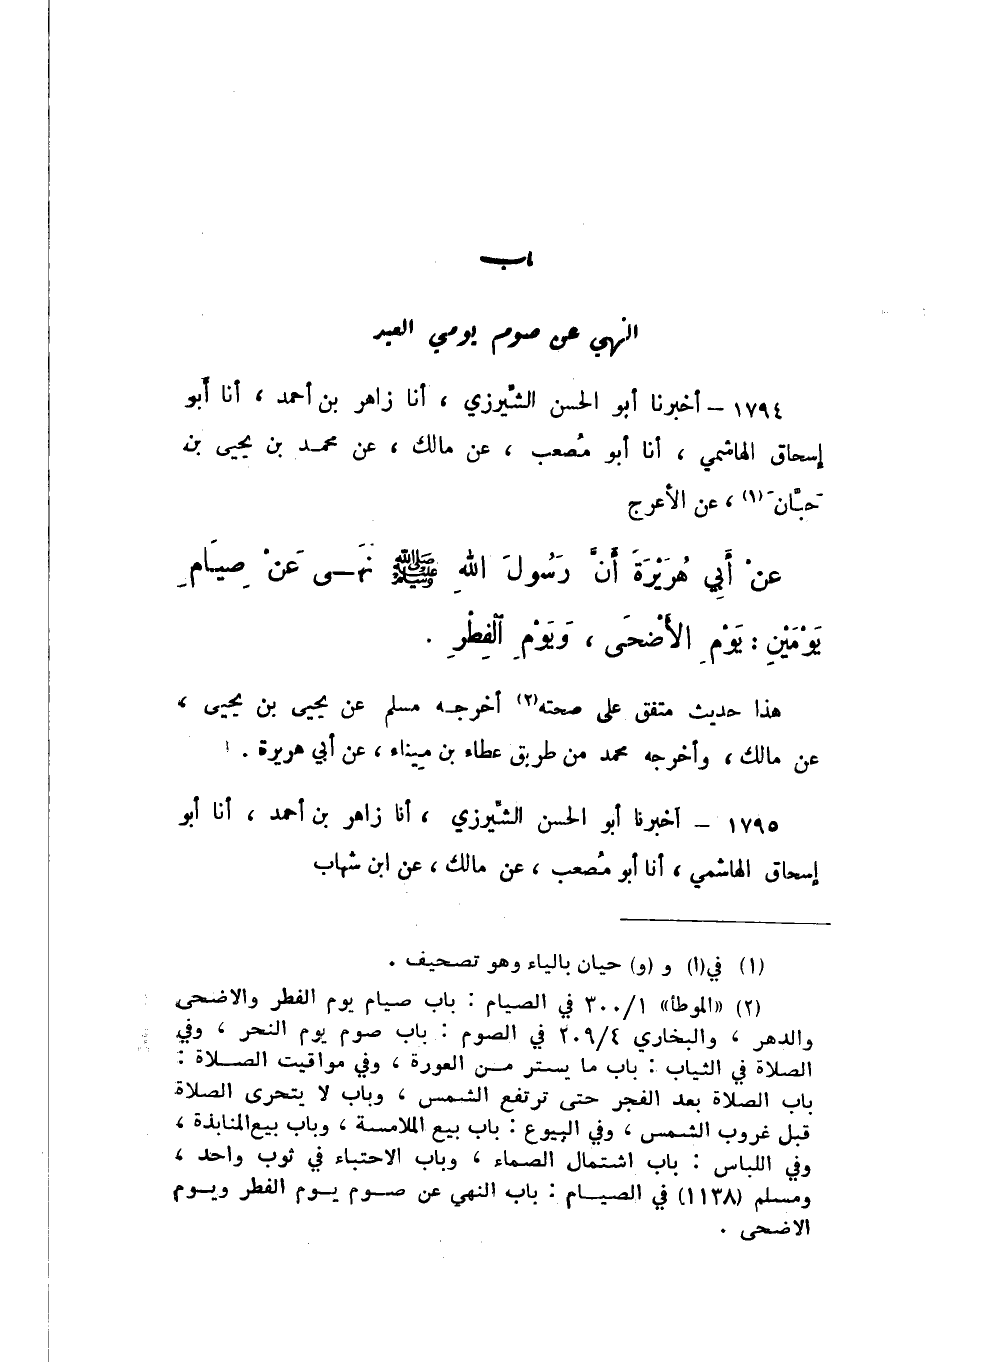 باب
النهي عن صوم يومي العيد
١٧٩٤ – أخبرنا أبو الحسن الشِّيرزي ، أنا زاهر بن أحمد ، أنا أبو
إسحاق الهاشمي ، أنا أبو مُصعب ، عن مالك ، عن محمد بن يحيى بن
حَبَّان (١) ، عن الأعرج
عنْ أَبِي هُرَيْرَةَ أَنَّ رَسُولَ اللهِ ﷺ نَهَى عَنْ صِيَامِ
يَوْمَيْنِ : يَوْمِ الأَضْحَى ، وَيَوْمِ الْفِطْرِ .
هذا حديث متفق على صحته(٢) أخرجه مسلم عن يحيى بن يحيى ،
عن مالك ، وأخرجه محمد من طريق عطاء بن ميناء ، عن أبي هريرة .
١٧٩٥ – أخبرنا أبو الحسن الشِّيرزي ، أنا زاهر بن أحمد ، أنا أبو
إسحاق الهاشمي ، أنا أبو مُصعب ، عن مالك ، عن ابن شهاب
(١) في(ا) و (و) حيان بالياء وهو تصحيف .
(٢) «الموطأ» ٣٠٠/١ في الصيام : باب صيام يوم الفطر والاضحى
والدهر ، والبخاري ٢٠٩/٤ في الصوم : باب صوم يوم النحر ، وفي
الصلاة في الثياب : باب ما يستر من العورة ، وفي مواقيت الصلاة :
باب الصلاة بعد الفجر حتى ترتفع الشمس ، وباب لا يتحرى الصلاة
قبل غروب الشمس ، وفي البيوع : باب بيع الملامسة ، وباب بيع المنابذة ،
وفي اللباس : باب اشتمال الصماء ، وباب الاحتباء في ثوب واحد ،
ومسلم (١١٣٨) في الصيام : باب النهي عن صوم يوم الفطر ويوم
الاضحى .